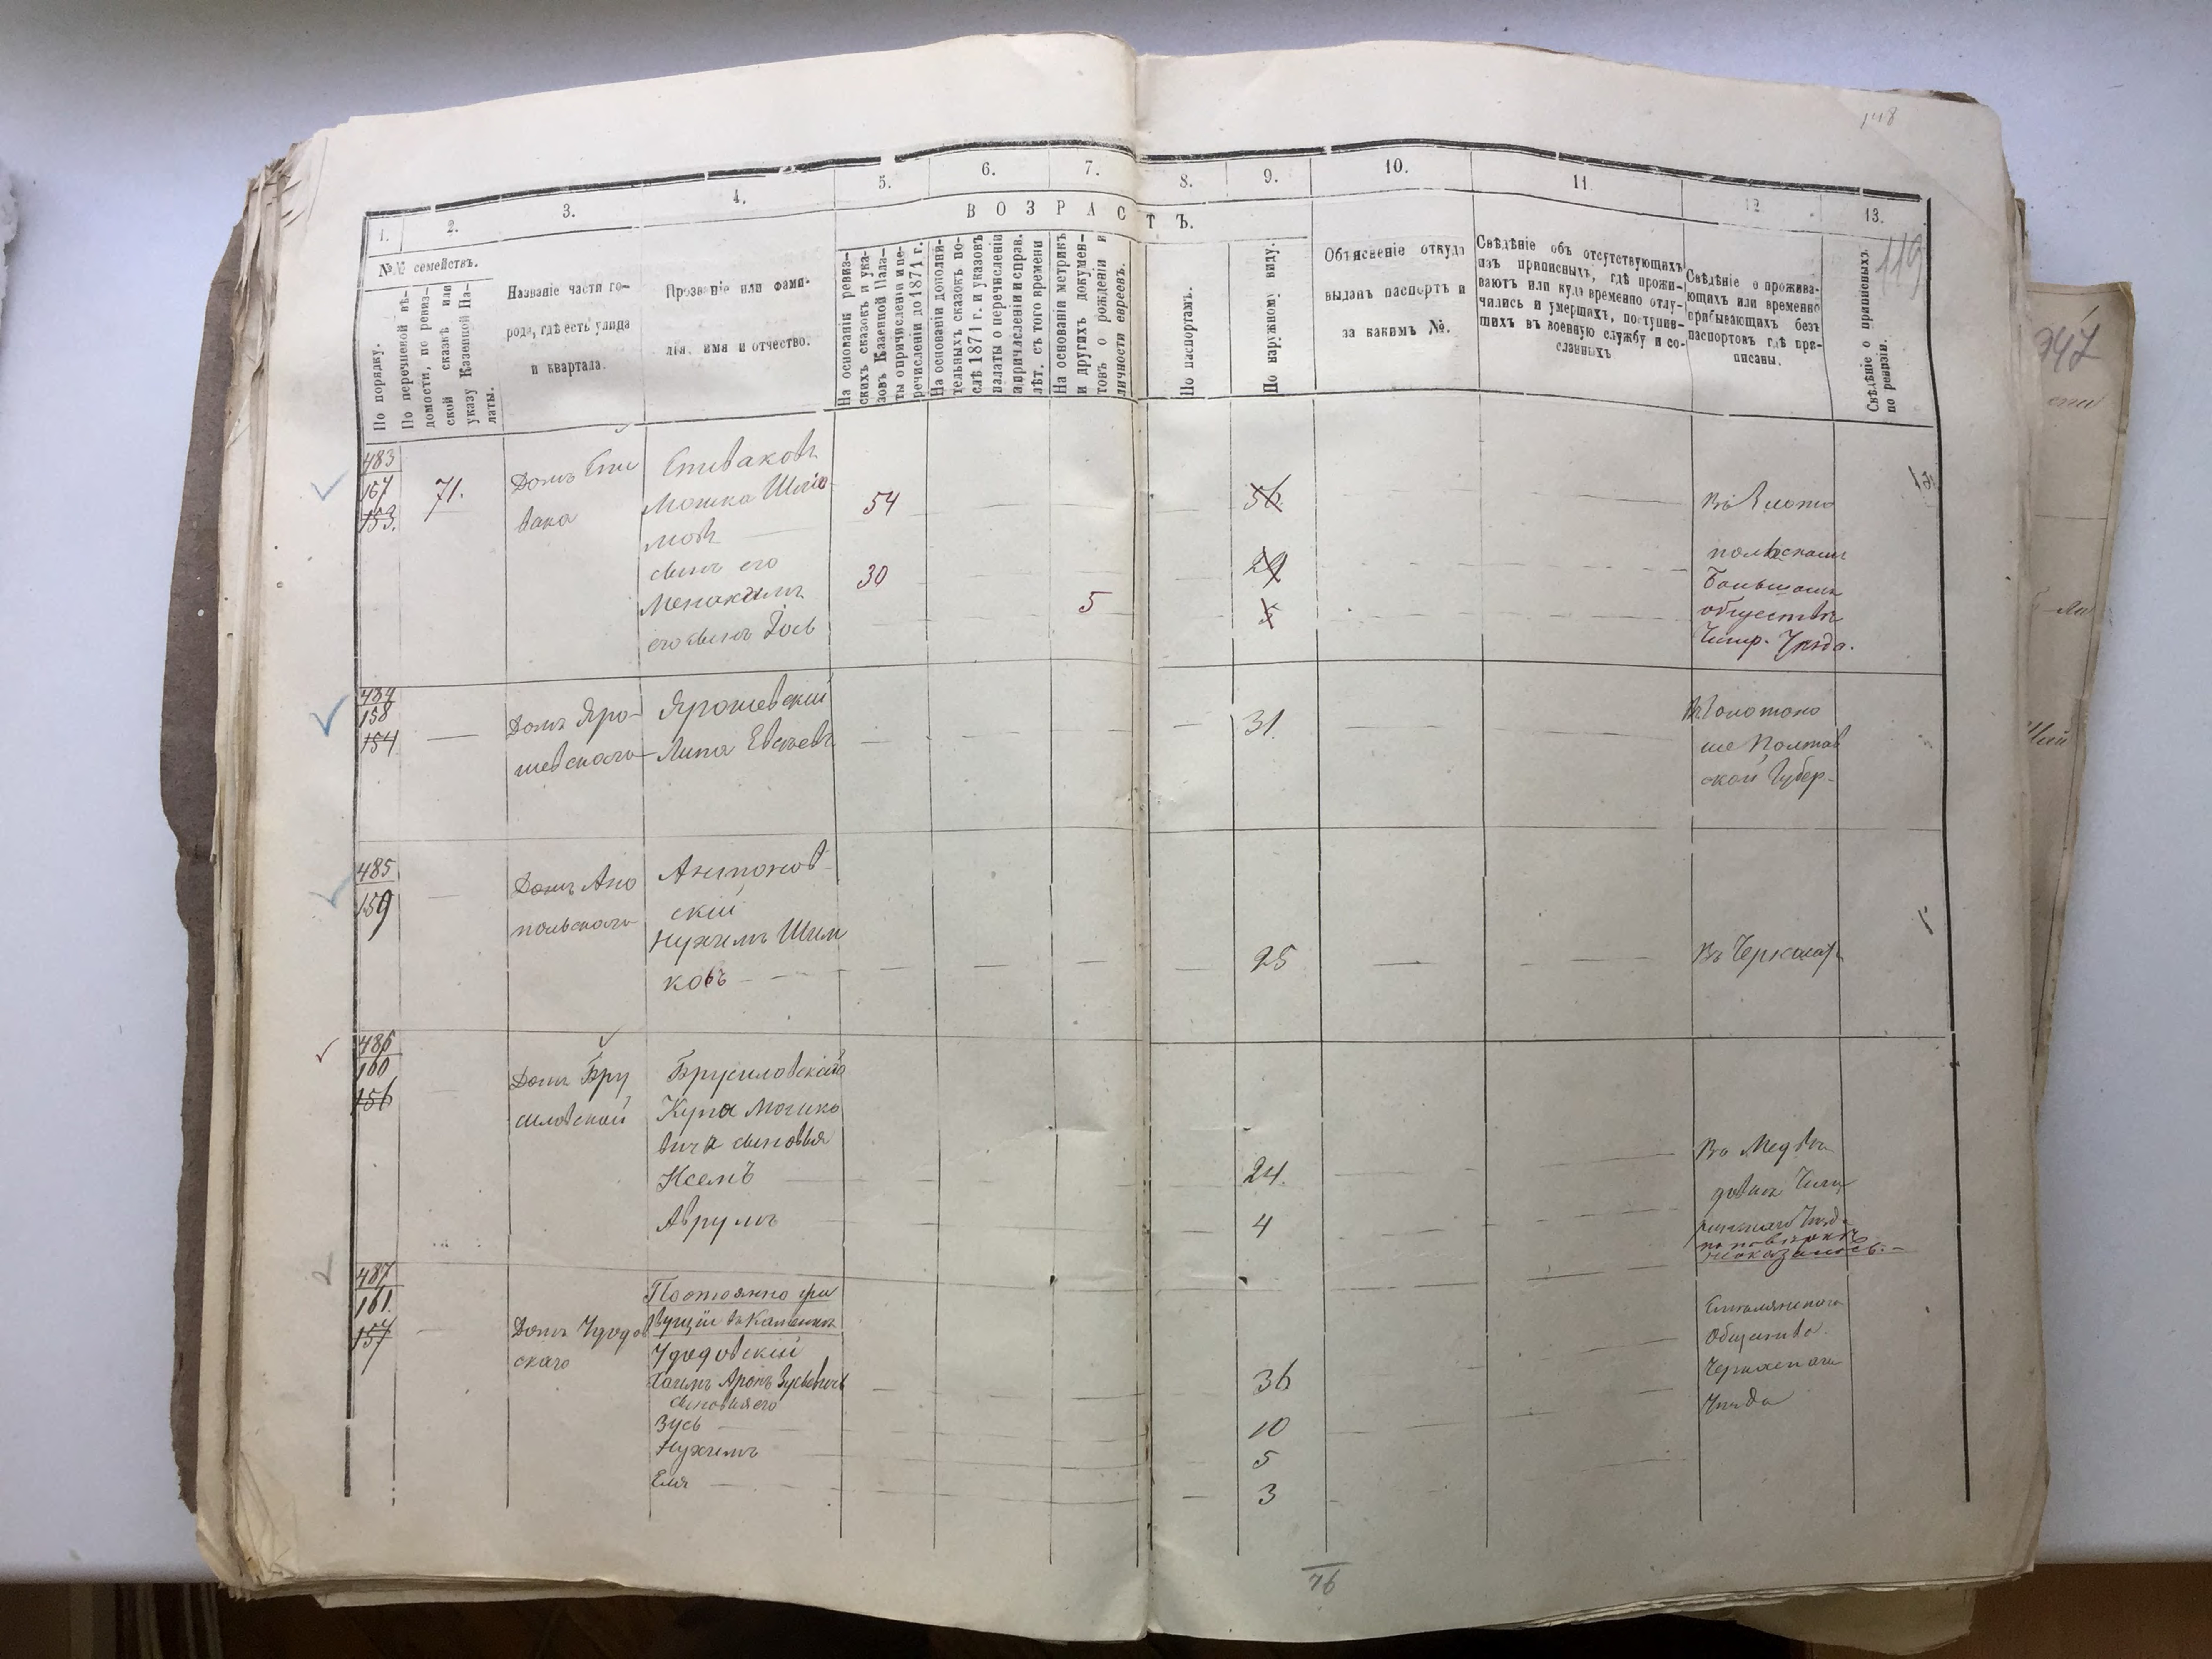 118
119
1.
2.
3.
4.
5.
6.
7.
8.
9.
10.
11.
12.
13.
ВОЗРАСТЪ.
№№ семействъ.
По порядку.
По перечневой вѣ-
домости, по ревиз-
ской сказкѣ или
указу Казенной Па-
латы.
Названіе части го-
рода, гдѣ есть улица
и квартала.
Прозваніе или фами-
лія, имя и отчество.
На основаніи ревиз-
скихъ сказокъ и ука-
зовъ Казенной Пала-
ты о причисленіи и пе-
речисленіи до 1871 г.
На основаніи дополни-
тельныхъ сказокъ по-
слѣ 1871 г. и указовъ
палаты о перечисленіи
и причисленіи и справ.
лѣт. съ того времени
На основаніи метрикъ
и другихъ докумен-
товъ о рожденіи и
личности евреевъ.
По паспортамъ.
По наружному виду.
Объясненіе откуда
выданъ паспортъ и
за какимъ №.
Свѣдѣніе объ отсутствующихъ
изъ приписныхъ, гдѣ прожи-
ваютъ или куда временно отлу-
чились и умершихъ, поступив-
шихъ въ военную службу и со-
сланныхъ
Свѣдѣніе о прожива-
ющихъ или временно
прибывающихъ безъ
паспортовъ гдѣ при-
писаны.
Свѣдѣніе о приписныхъ
по ревизіи.
483
157
153.
71.
Домъ Спи
вака
Спиваковъ
Мошка Шлио-
мовъ
сынъ его
Менахимъ
его сынъ Іось
54
30
5
56
29
5
польскомъ
Большомъ
обществѣ
Чигир. Уѣзда.
484
158
154
Домъ Яро-
шевскаго
Ярошевскій
Липа Евсѣевъ
31
Золотоно
ше Полтав
ской Губер-
485
159
Домъ Ано
польскаго
Антонов
скій
Нухимъ Шим
ковъ
25
Въ Черкасахъ
486
160
156
Домъ Бру
силовской
Брусиловскій
Мошко
вича сыновья
Нсемъ
Аврумъ
24.
4
Въ Медвѣ
довкѣ Чиги
ринскаго Уѣзда
по повѣркѣ
неоказалось.
487
161.
157
Домъ Удодов
скаго
Постоянно жи
вущій въ Каменкѣ
Удодовскій
Хаимъ Аронъ Зусьевичъ
сыновья его
Зусь
Нухимъ
Еля
36
10
5
3
Смѣлянскаго
Общества
Черкасскаго
Уѣзда
76